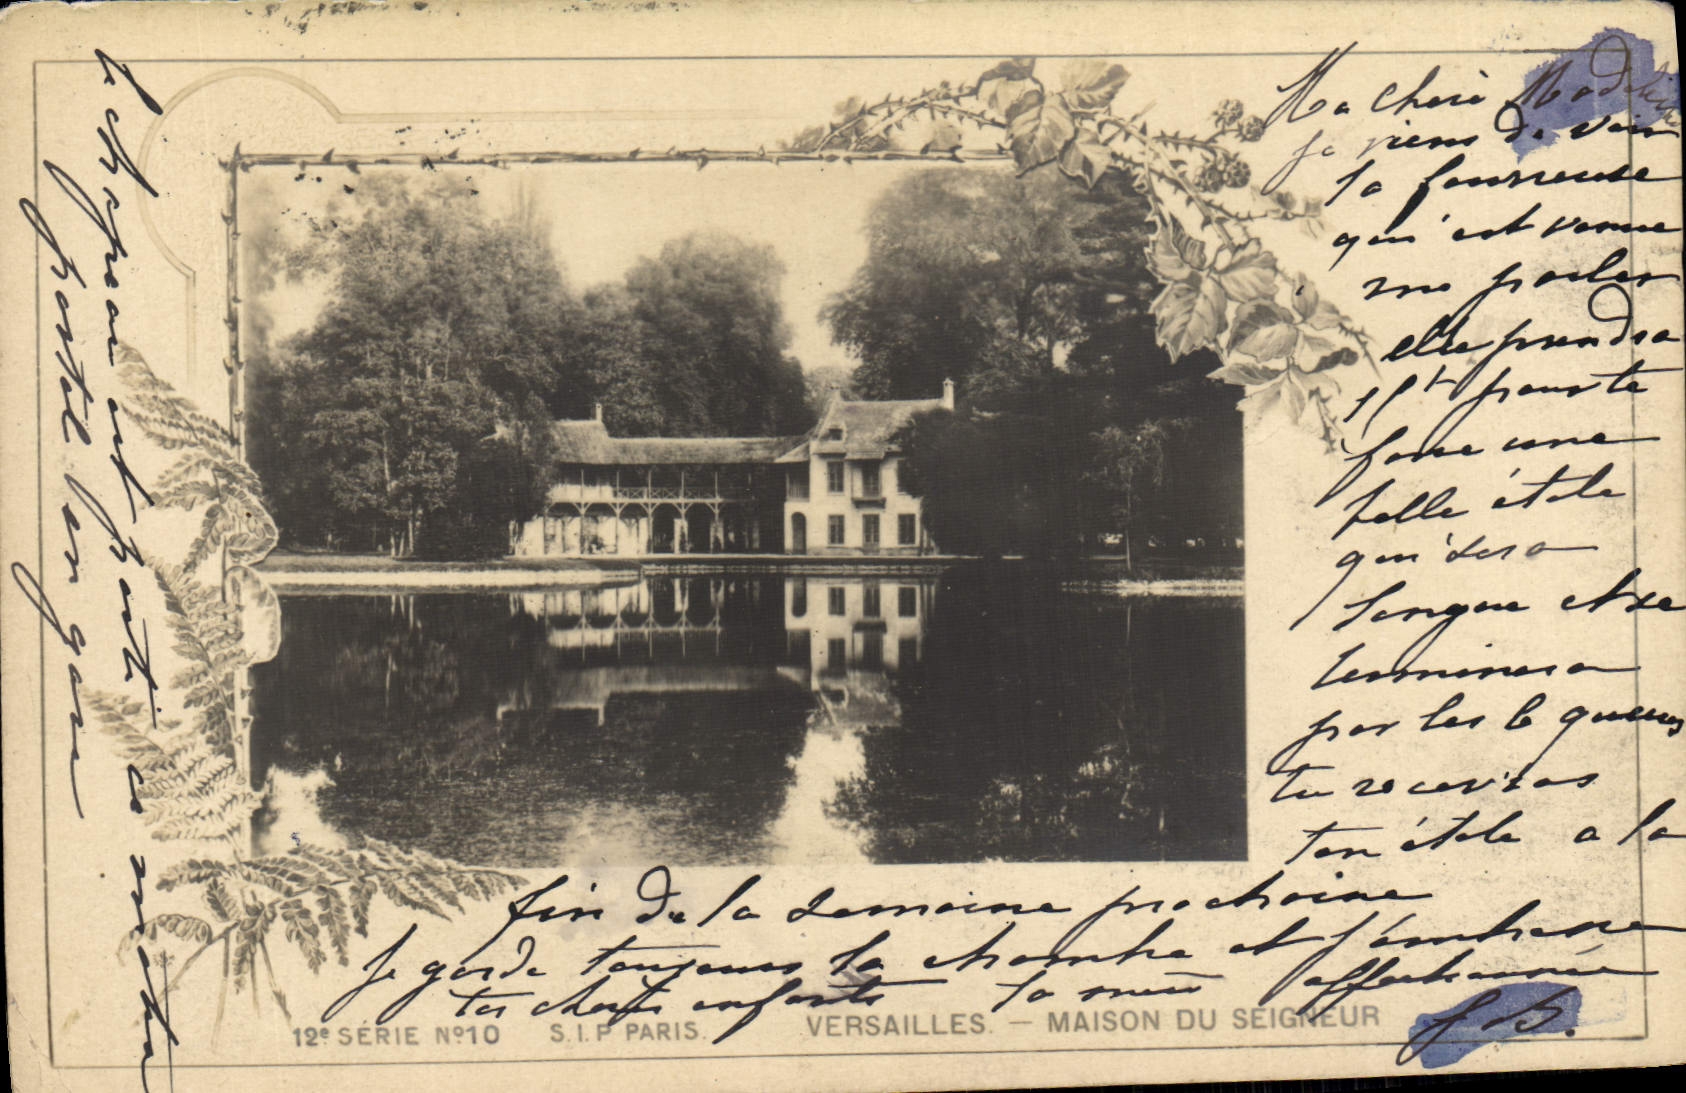 Ma chère Madeleine
je viens de voir
la fourreuse
qui est venue
me parler
elle prendra
15 ft pour te
faire une
belle étole
qui sera
longue et se
terminera
par les 6 queues
tu recevras
ton étole a la
fin de la semaine prochaine
Je garde toujours la chambre et j'embrasse
tes chers enfants ta mère affectionnée
J B.
le chapeau est parti ce matin
postal en gare
12e SÉRIE No 10 S.I.P PARIS. VERSAILLES. — MAISON DU SEIGNEUR